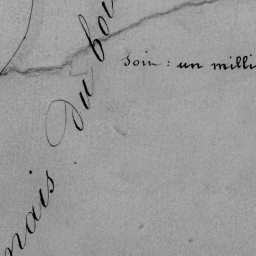 soin : un milli
nais. Du bou